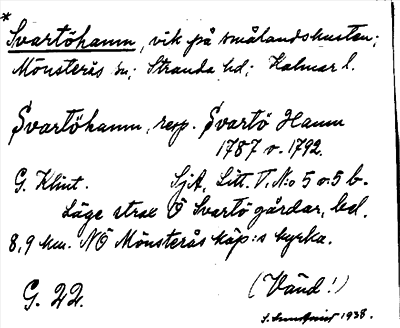 *
Svartöhamn, vik på smålandskusten;
Mönsterås sn; Stranda hd; Kalmar l.
Svartöhamn, resp. Svartö Hamn
1787 o. 1792.
G. Klint. SjA, Litt. V. No 5 o. 5 b.
Läge strax Ö Svartö gårdar, bel.
8,9 km. NÖ Mönsterås köp:s kyrka.
G. 22. (Vänd!)
1938.